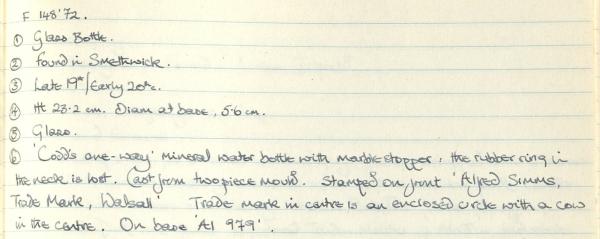 F 148'72.
① Glass Bottle.
② Found in Smethwick.
③ Late 19th/Early 20thc.
④ Ht 23.2 cm. Diam at base, 5.6 cm.
⑤ Glass.
⑥ 'Codd's one-way' mineral water bottle with marble stopper, the rubber ring in
the neck is lost. Cast from two piece mould. Stamped on front 'Alfred Simms,
Trade Mark, Walsall' Trade mark in centre is an enclosed circle with a cow
in the centre. On base 'A1 979'.